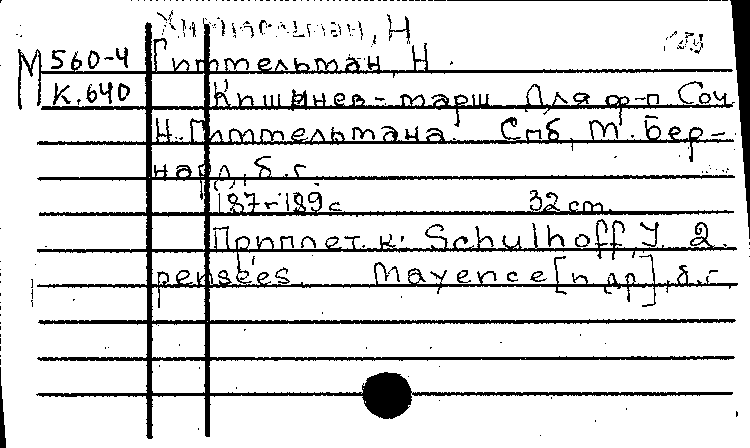 Химмельман, Н
М 560-4 Гиттельман, Н.
К.640 Кишинев-марш Для ф-п Соч
Н.Гиттельмана. Спб, М.Бер-
нард, б.г.
187-189с 32 cm.
Приплет. к: Schulhoff, J. 2.
pensées. Mayence [и др], б.г.